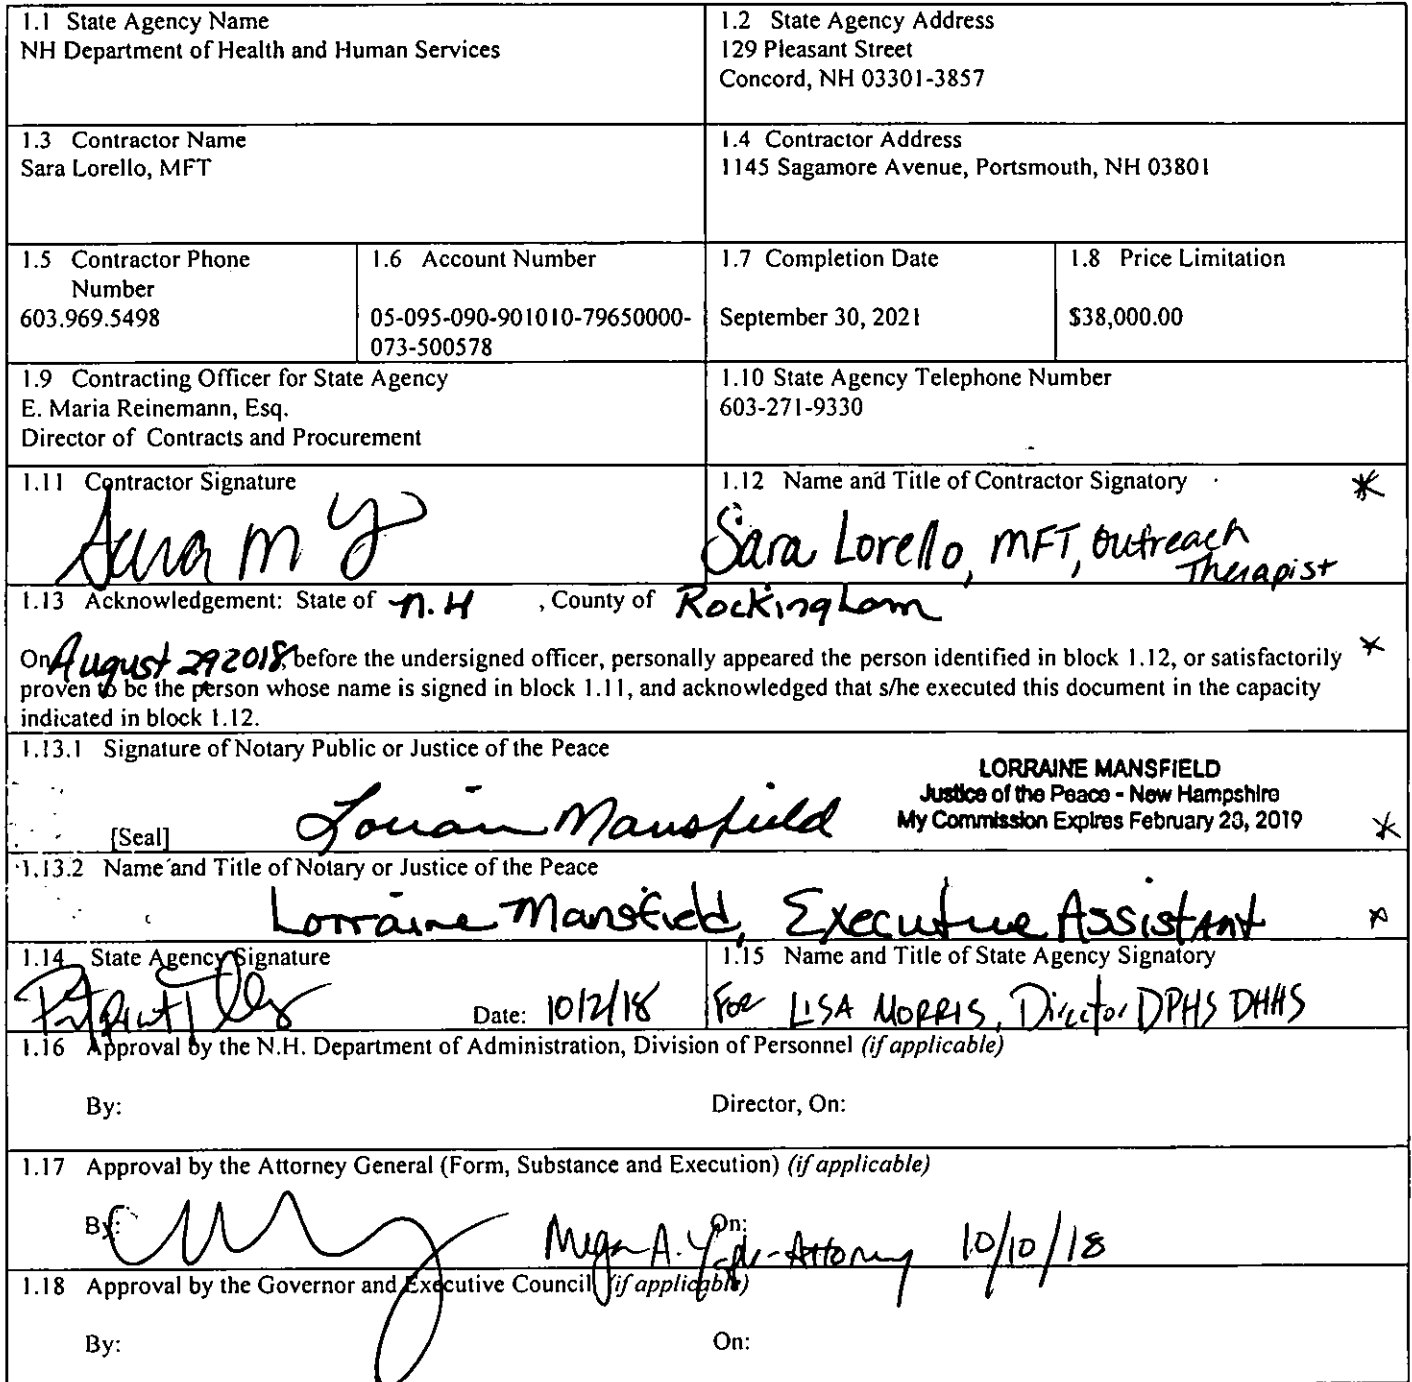 1.1 State Agency Name
NH Department of Health and Human Services
1.2 State Agency Address
129 Pleasant Street
Concord, NH 03301-3857
1.3 Contractor Name
Sara Lorello, MFT
1.4 Contractor Address
1145 Sagamore Avenue, Portsmouth, NH 03801
1.5 Contractor Phone
Number
603.969.5498
1.6 Account Number
05-095-090-901010-79650000-
073-500578
1.7 Completion Date
September 30, 2021
1.8 Price Limitation
$38,000.00
1.9 Contracting Officer for State Agency
E. Maria Reinemann, Esq.
Director of Contracts and Procurement
1.10 State Agency Telephone Number
603-271-9330
1.11 Contractor Signature
Sara M
1.12 Name and Title of Contractor Signatory *
Sara Lorello, MFT, Outreach
Therapist
1.13 Acknowledgement: State of N.H , County of Rockingham
On August 29 2018, before the undersigned officer, personally appeared the person identified in block 1.12, or satisfactorily *
proven to be the person whose name is signed in block 1.11, and acknowledged that s/he executed this document in the capacity
indicated in block 1.12.
1.13.1 Signature of Notary Public or Justice of the Peace
LORRAINE MANSFIELD
Justice of the Peace - New Hampshire
My Commission Expires February 23, 2019 *
[Seal] Lorraine Mansfield
1.13.2 Name and Title of Notary or Justice of the Peace
Lorraine Mansfield, Executive Assistant *
1.14 State Agency Signature
Date: 10/2/18
1.15 Name and Title of State Agency Signatory
For LISA MORRIS, Director DPHS DHHS
1.16 Approval by the N.H. Department of Administration, Division of Personnel (if applicable)
By: Director, On:
1.17 Approval by the Attorney General (Form, Substance and Execution) (if applicable)
By: On:
Megan A. - Attorney 10/10/18
1.18 Approval by the Governor and Executive Council (if applicable)
By: On: